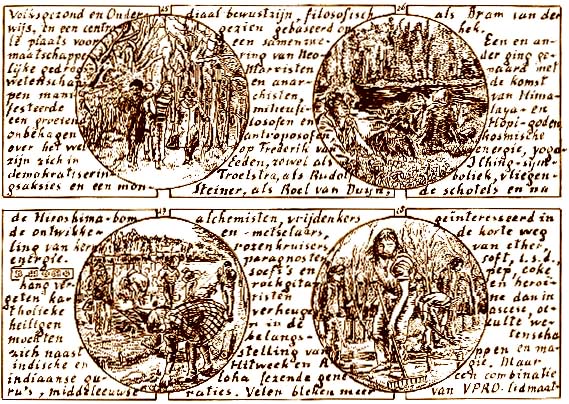 Volksgezond en Onder
wijs, in een centra
le plaats voor
maatschappe
lijke gedrags
wetenschap
pen mani
festeerde
een groeiend
onbehagen
over het wel
zijn zich in
demokratiserin
gsaksies en een mon-
diaal bewustzijn, filosofisch
gezien gebaseerd op
een samenzwe
ring van Neo-
Marxisten
en anar-
chisten,
milieufi-
losofen en
antroposofen,
op Frederik v
Eeden, zowel als
Troelstra, als Rudolf
Steiner, als Roel van Duyn,
als Bram van der
Lek.
Een en an-
der ging ge-
paard met
de komst
van Hima-
laya- en
Hopi-goden,
kosmische
energie, yoga
I Ching-sym-
boliek, vliegen-
de schotels en na
de Hiroshima-bom
de ontwikke
ling van kern
energie.
geten ka-
tholieke
heiligen
mochten
zich naast
indische en
indiaanse gu-
ru's, middeleeuwse
alchemisten, vrijdenkers
en -metselaars,
rozenkruisers,
paragnosten
soefi's en
rockgita
risten
verheuge
n in de
belangs-
stelling van
Hitweek en A
loha lezende gene
raties. Velen bleken meer
geïnteresseerd in
de korte weg
van ether,
soft, l.s.d.,
pep, coke
en heroï-
ne dan in
ascese, oc-
culte we-
tenscha
ppen en ma-
gie. Maar
een combinatie
van VPRO-lidmaat-